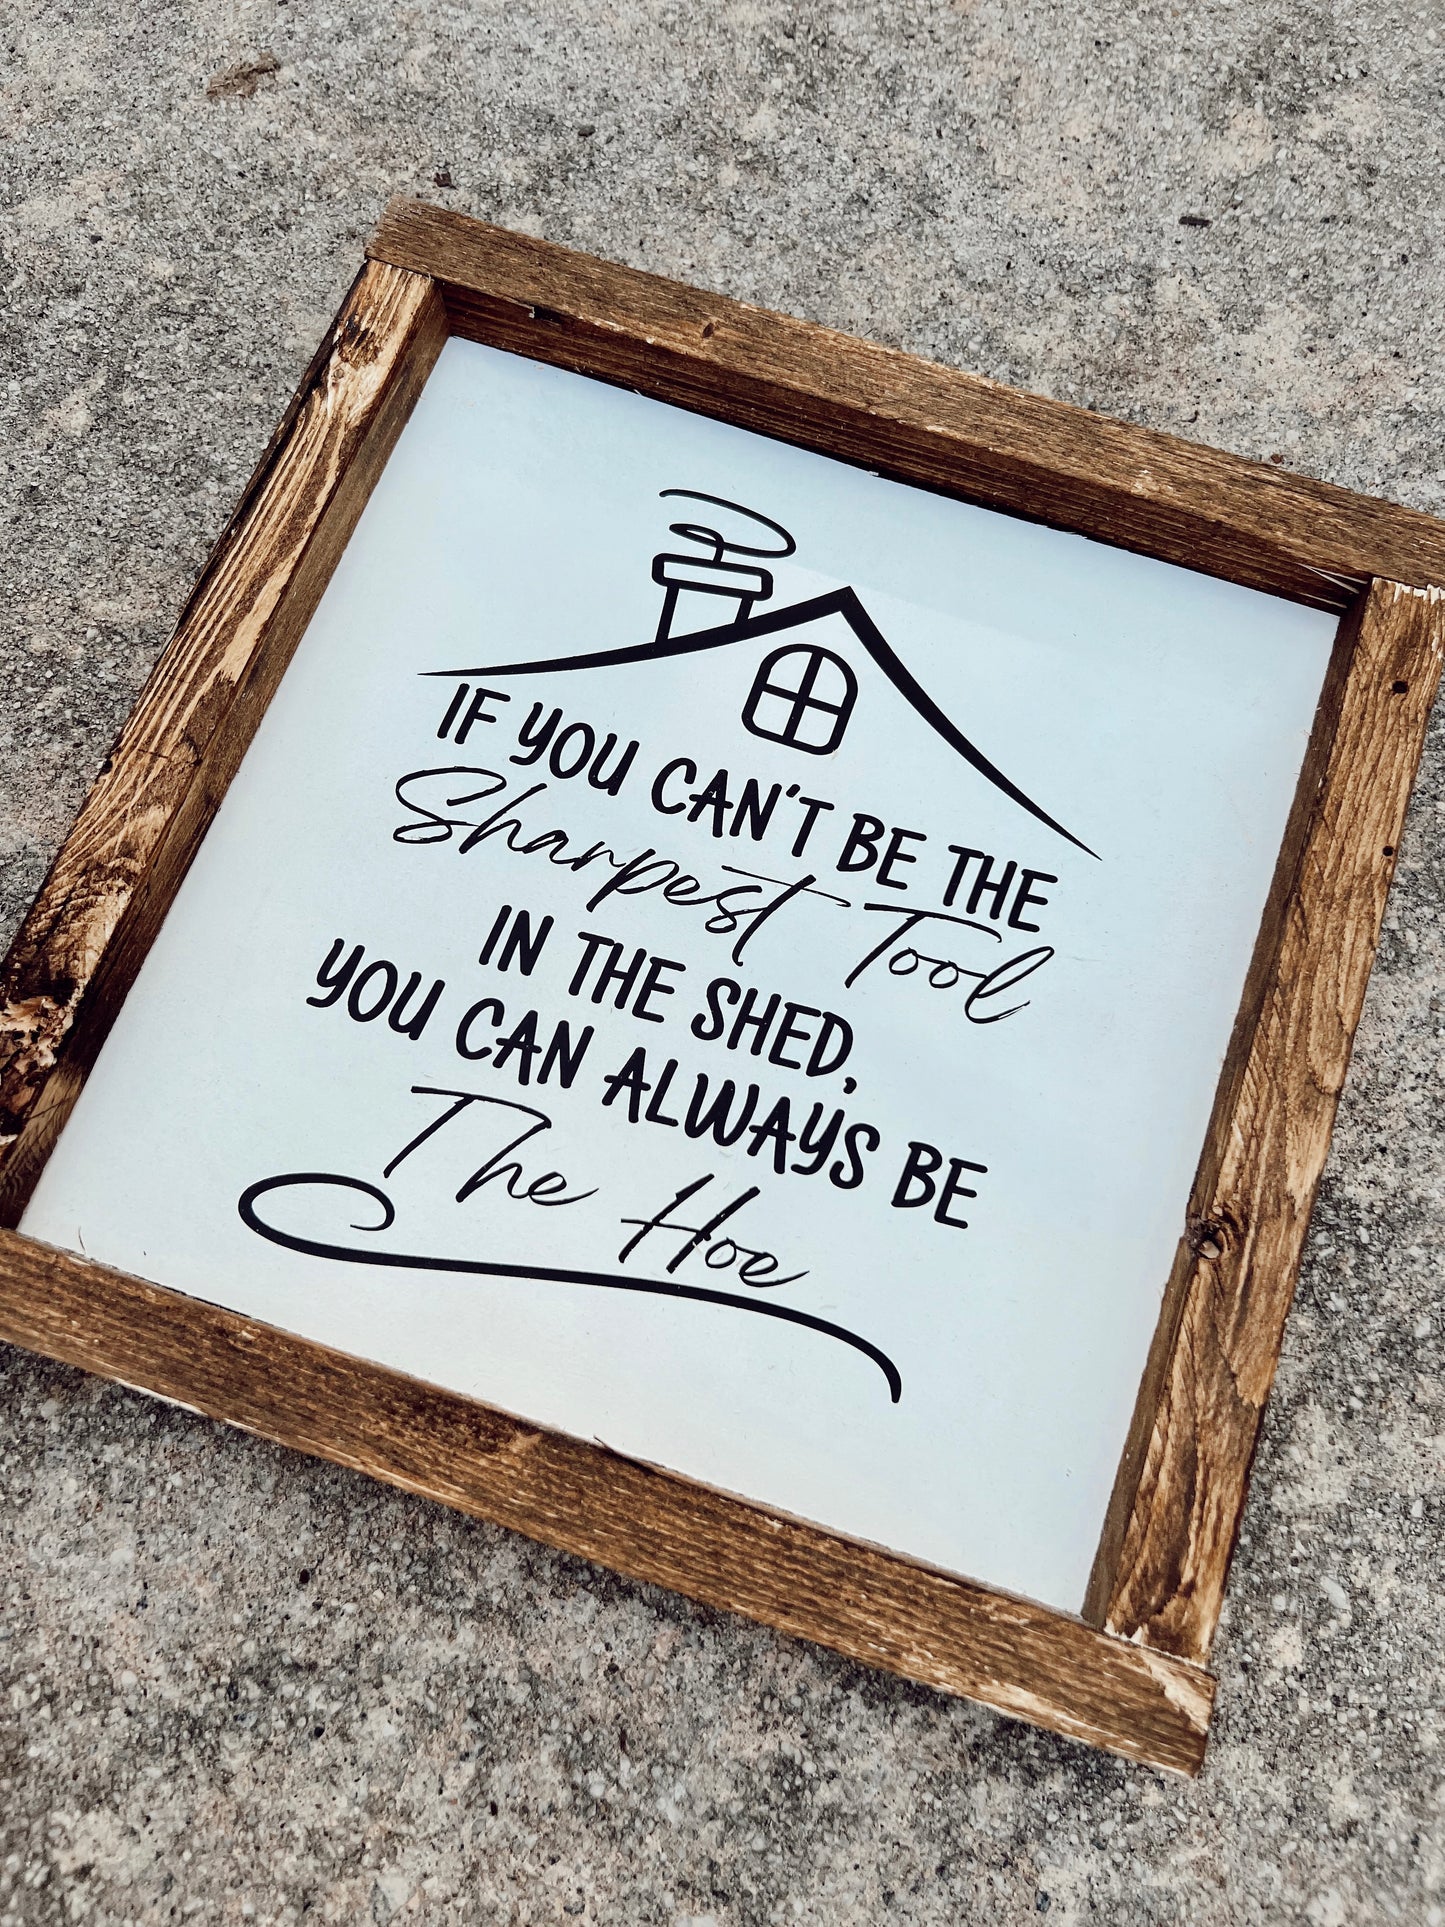 IF YOU CAN'T BE THE
Sharpest Tool
IN THE SHED,
YOU CAN ALWAYS BE
The Hoe